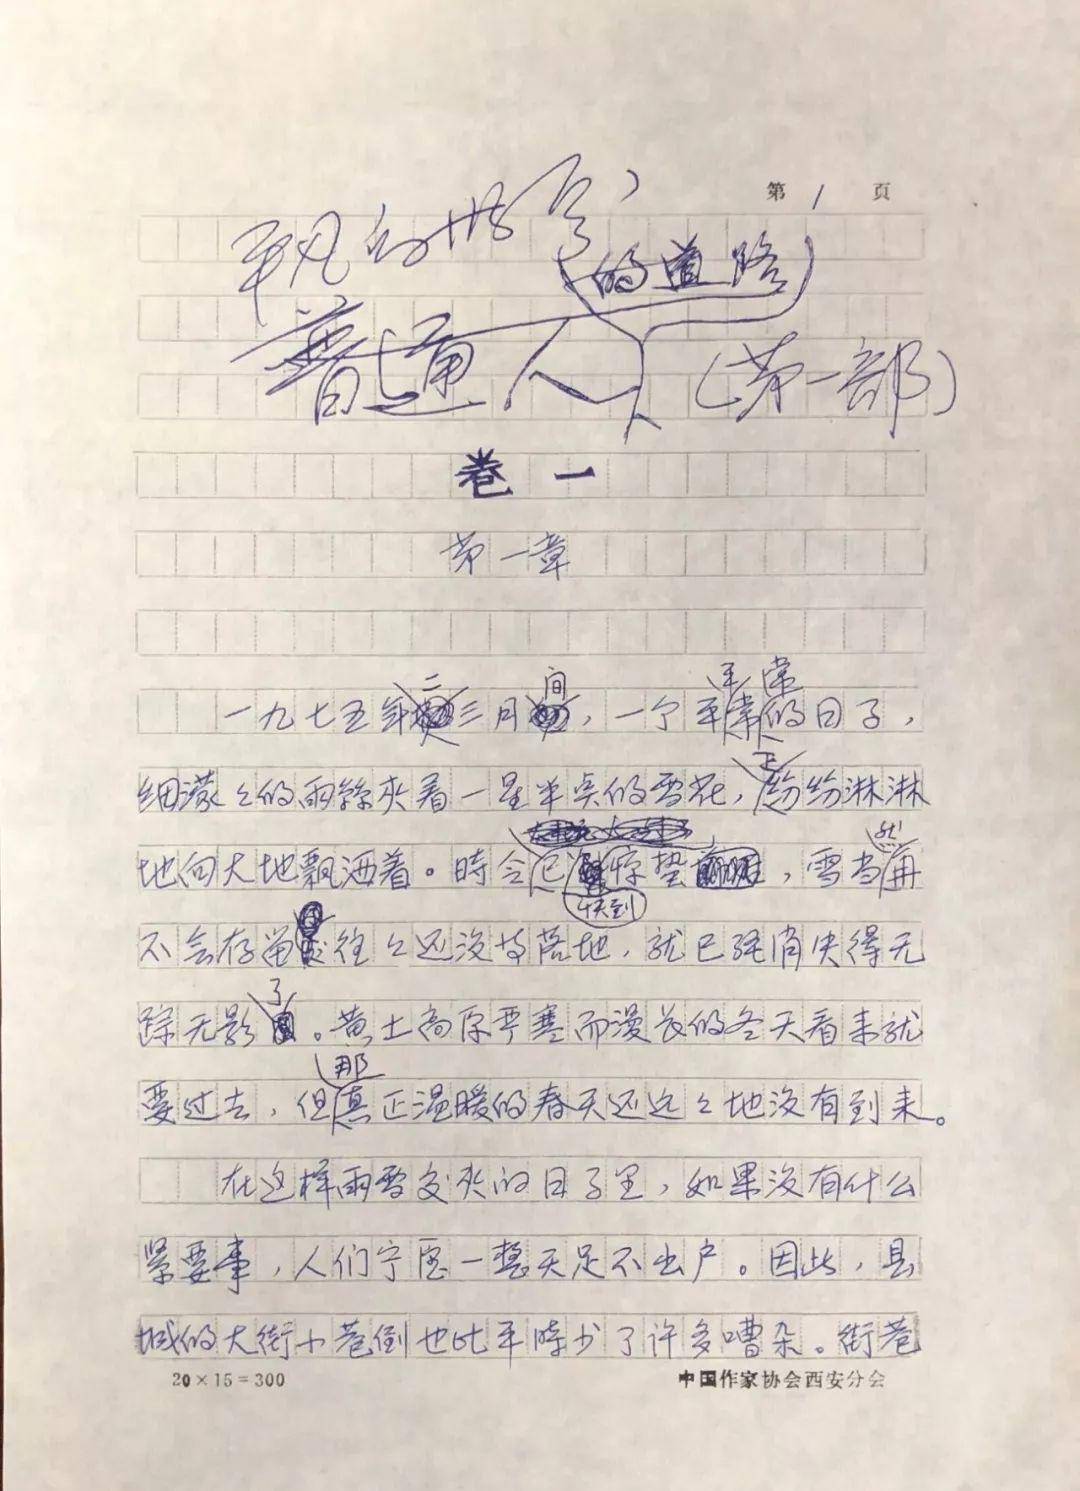 第1页
平凡的世界
的道路
普通人
(第一部)
卷一
第一章
二 间 平常
一九七五年三月,一个平常的日子,
细濛々的雨絲夹着一星半点的雪花,正纷纷淋淋
地向大地飘洒着。時令已快到惊蛰,雪当然再
不会存留,往々还没等落地,就已经消失得无
踪无影了。黄土高原严寒而漫长的冬天看来就
要过去,但那真正温暖的春天还远々地没有到来。
在这样雨雪交夹的日子里,如果没有什么
紧要事,人们宁愿一整天足不出户。因此,县
城的大街小巷倒也比平時少了许多嘈杂。街巷
20×15=300 中国作家协会西安分会